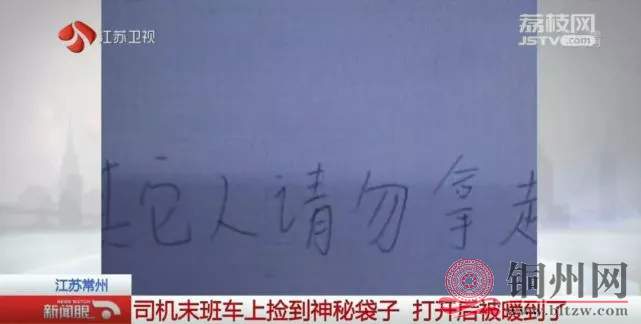 江苏卫视
荔枝网
JSTV.com
其它人请勿拿走
江苏常州
新闻眼
NEWS WATCH
司机末班车上捡到神秘袋子 打开后被暖到了
铜州网
www.bltzw.com